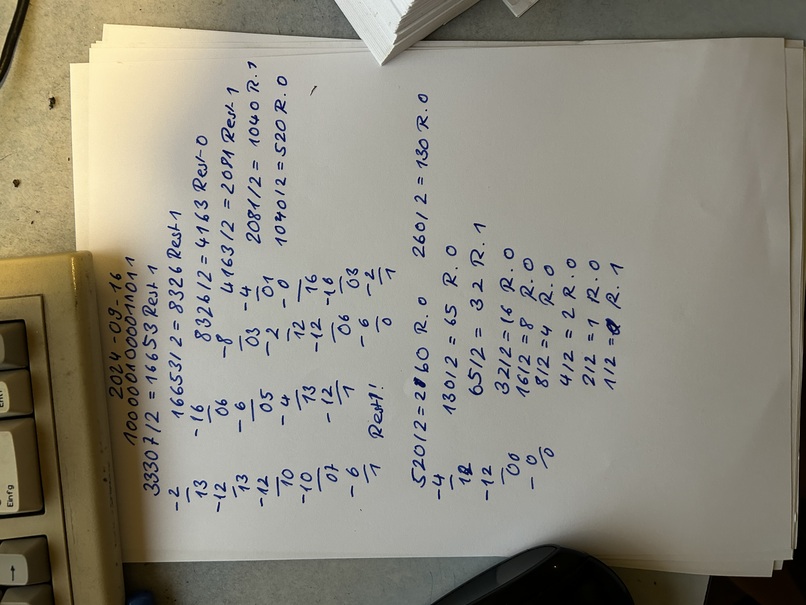 2024-09-16
1000001000011011
33307/2 = 16653 Rest 1
-2 16653/2 = 8326 Rest 1
13 -16 8326/2 = 4163 Rest 0
-12 06 -8 4163/2 = 2081 Rest 1
13 -6 03 -4 2081/2 = 1040 R. 1
-12 05 -2 01 1040/2 = 520 R. 0
10 -4 12 -0
-10 13 -12 16
07 -12 06 -16
-6 1 -6 03
1 Rest 1! 0 -2
1
520/2 = 260 R. 0 260/2 = 130 R. 0
-4 130/2 = 65 R. 0
12 65/2 = 32 R. 1
-12 32/2 = 16 R. 0
00 16/2 = 8 R. 0
-0 8/2 = 4 R. 0
0 4/2 = 2 R. 0
2/2 = 1 R. 0
1/2 = 0 R. 1
Einfg
→